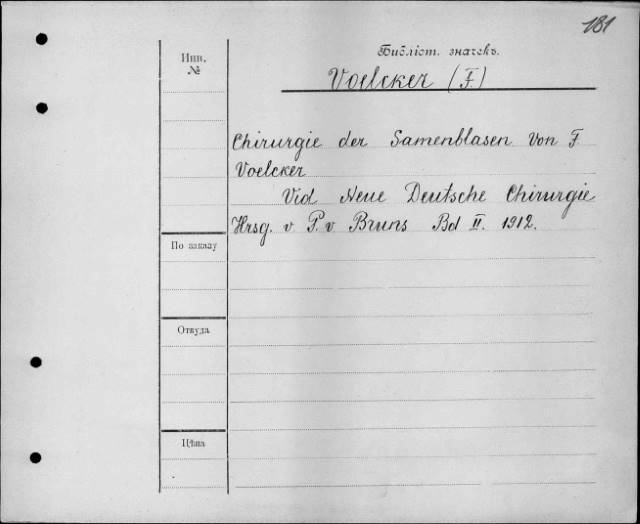 181
Инв.
№
Библіот. значекъ.
Voelcker (F.)
Chirurgie der Samenblasen von F.
Voelcker
Vid Neue Deutsche Chirurgie
Hrsg. v. P. v Bruns Bd II. 1912.
По заказу
Откуда
Цѣна